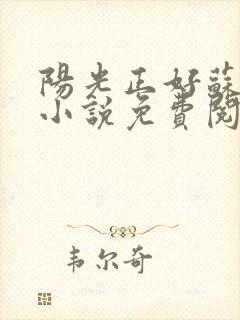 陽光正好蘇
小說免費閱
韦尔奇